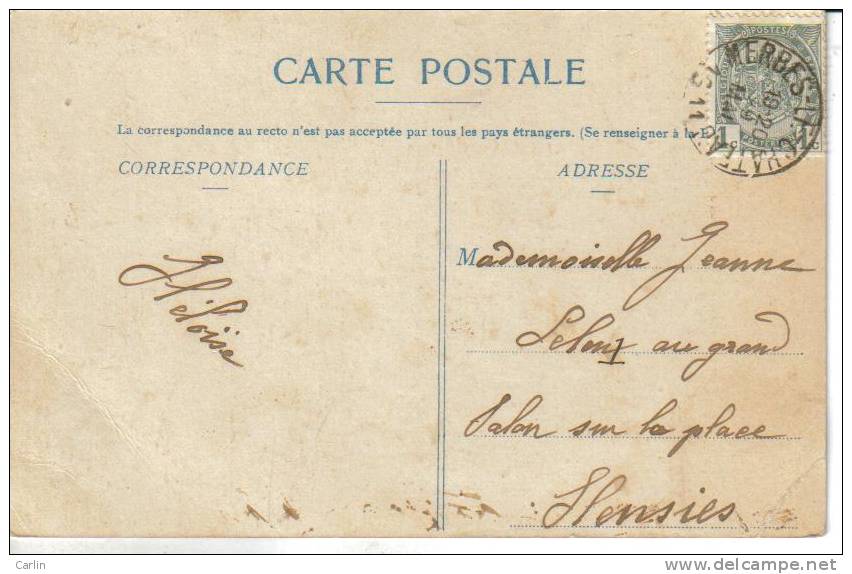 CARTE POSTALE
La correspondance au recto n'est pas acceptée par tous les pays étrangers. (Se renseigner à la
CORRESPONDANCE
ADRESSE
Héloïse
Mademoiselle Jeanne
au grand
Salon sur la place
Hensies
POSTES
MERBES-LE-CHATEAU
1 c
1 c
Carlin
www.delcampe.net